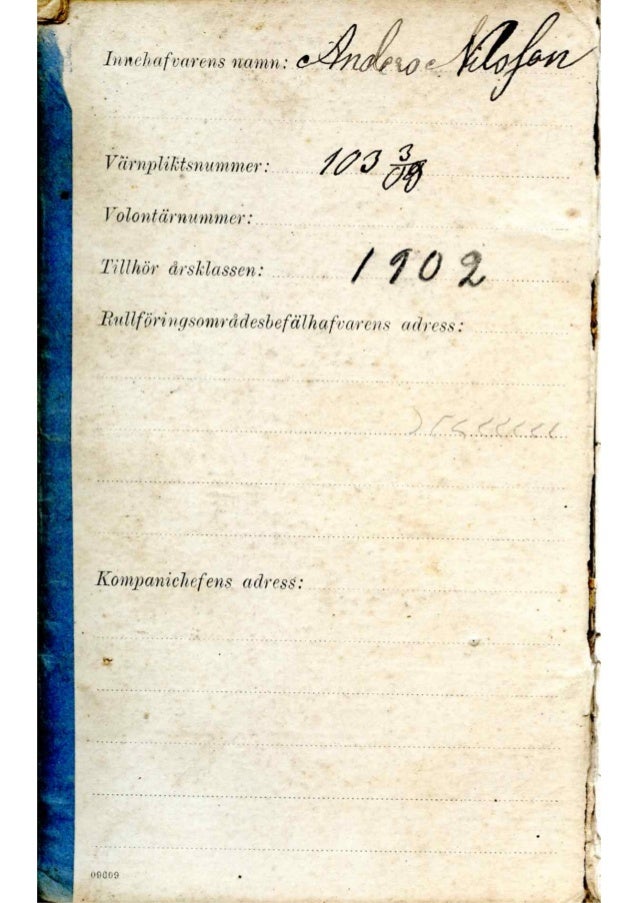 Innehafvarens namn: Anders Nilsson
Värnpliktsnummer: 103 3/
Volontärnummer:
Tillhör årsklassen: 1902
Rullföringsområdesbefälhafvarens adress:
Kompanichefens adress:
09609